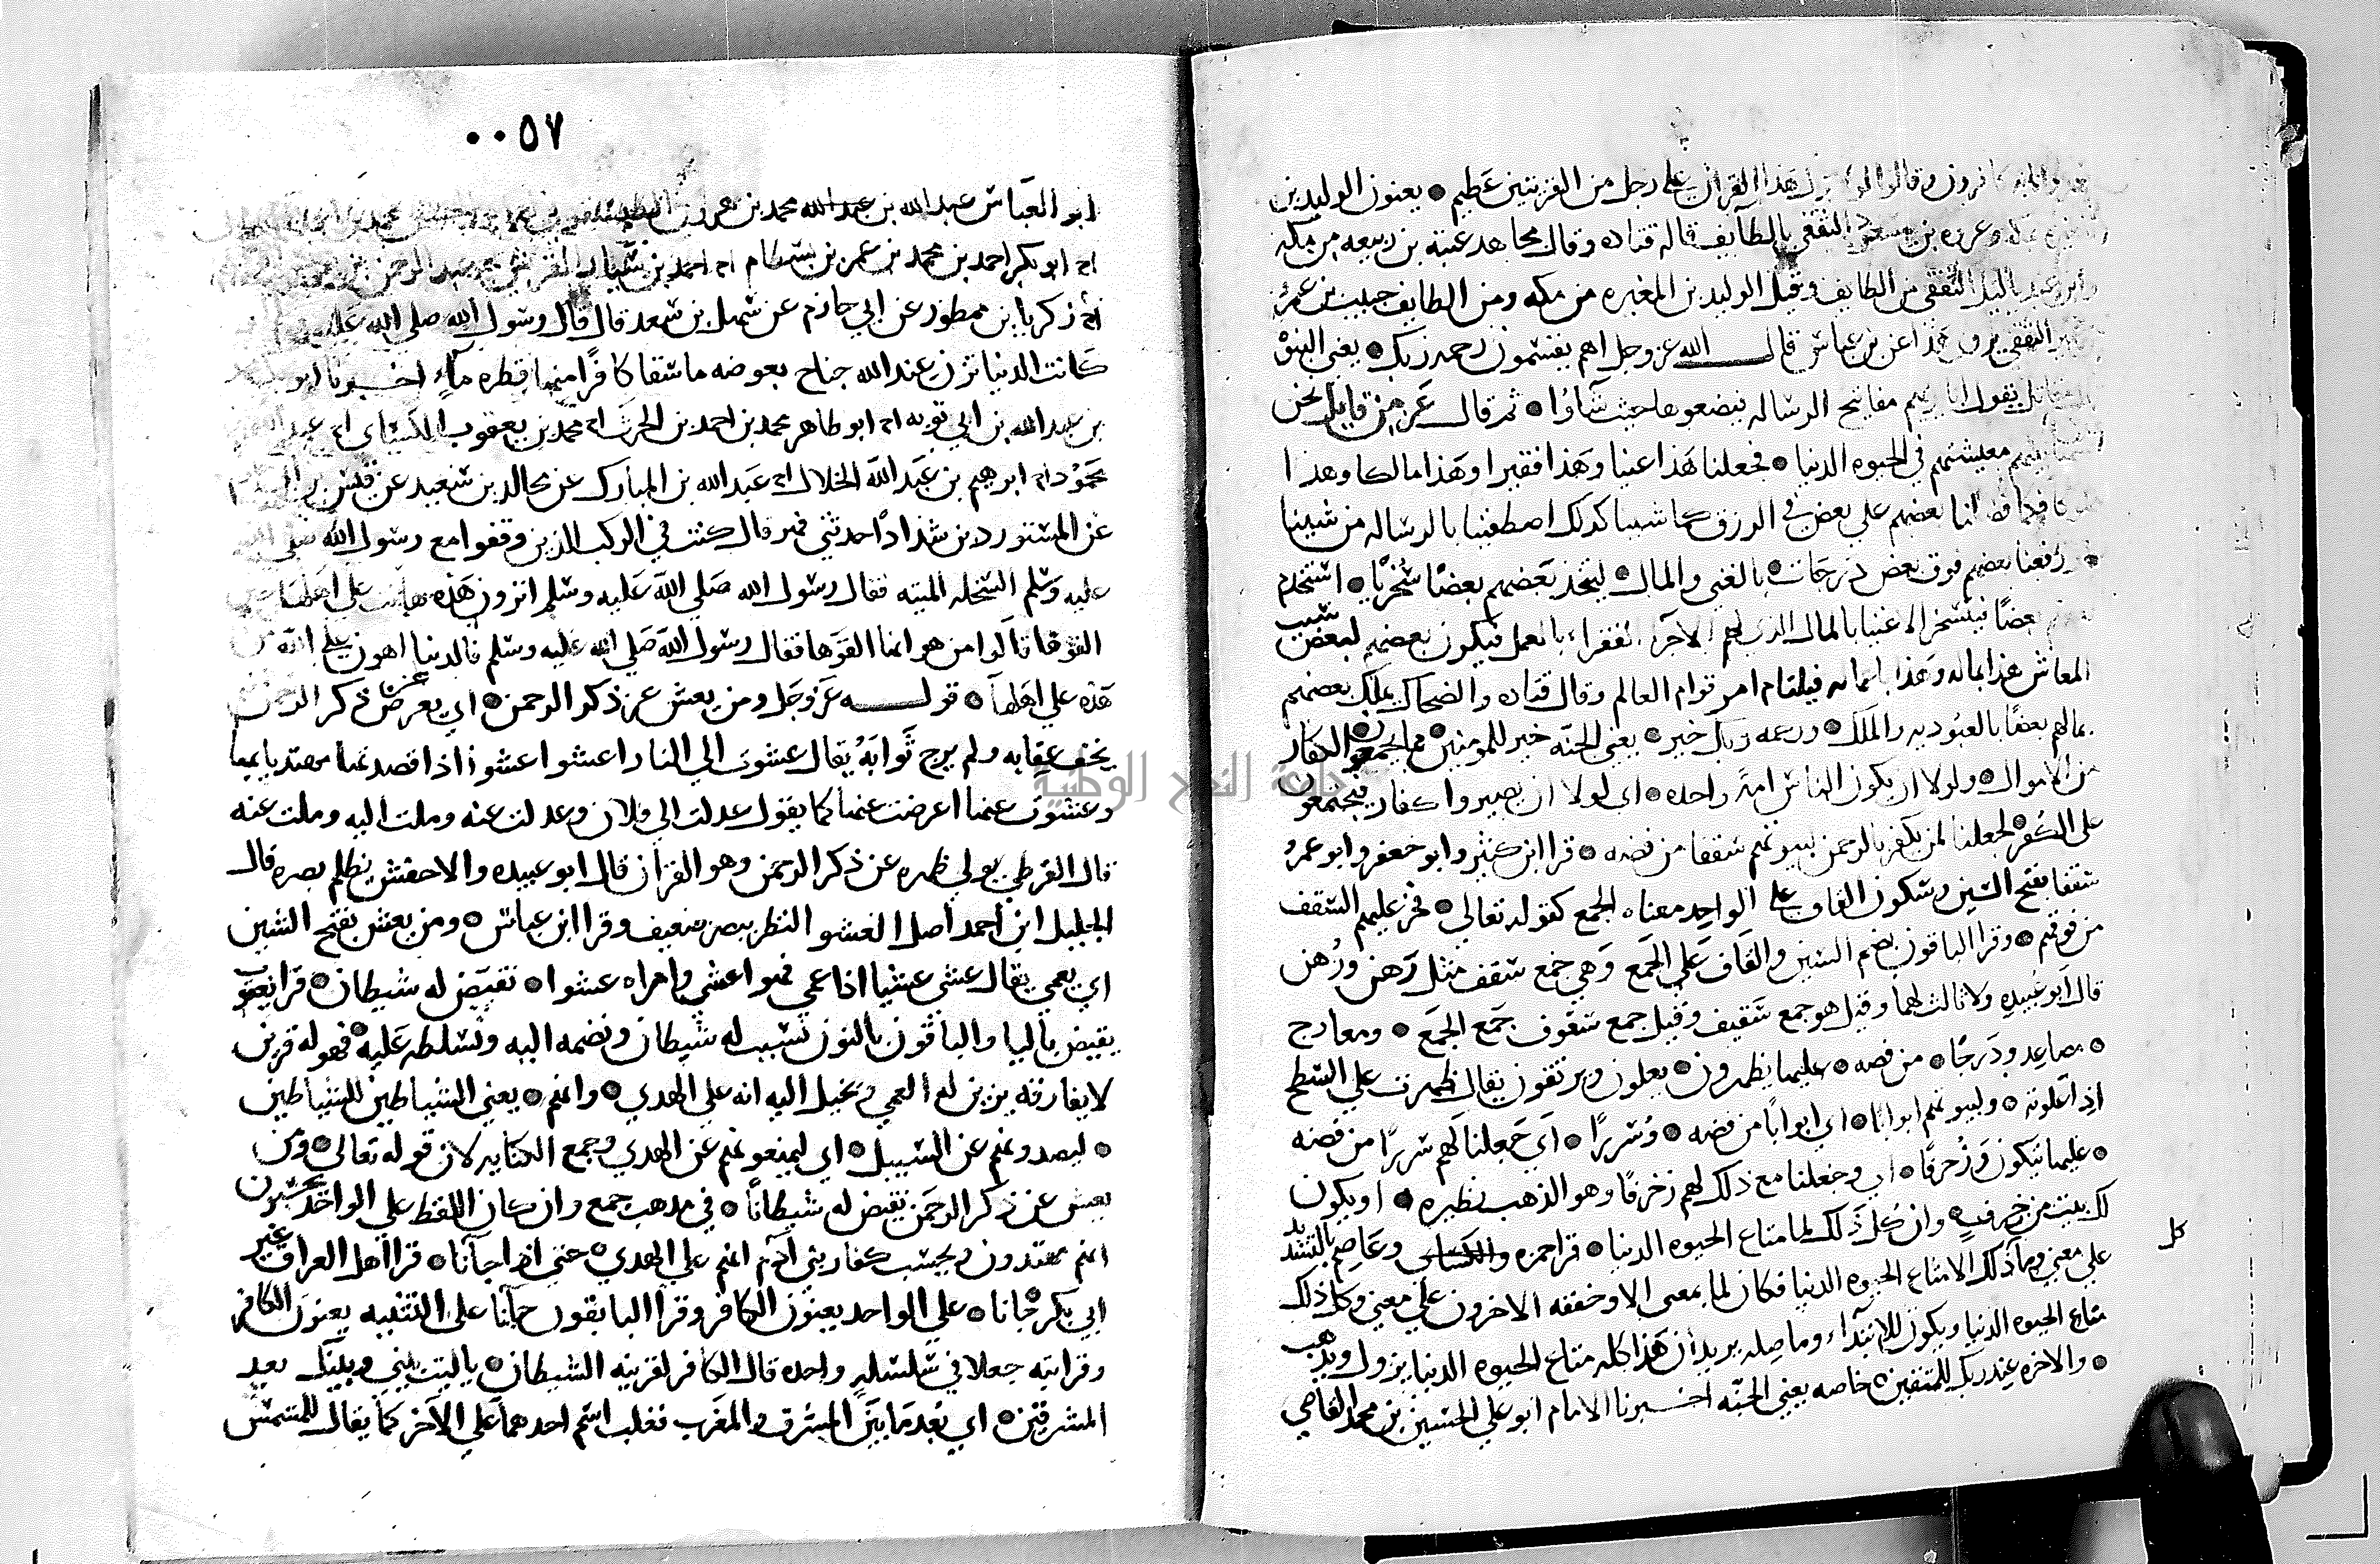 كافرون وقالوا لولا نزل هذا القران علي رجل من القريتين عظيم ⦿ يعنون الوليد بن
وعروه بن مسعود الثقفي بالطايف قاله قتاده وقال مجاهد عتبة بن ربيعه من مكه
وابن عبد ياليل الثقفي من الطايف وقيل الوليد بن المغيره من مكه ومن الطايف حبيب بن عمرو
الثقفي يروي هذا عن بن عباس قال الله عز وجل اهم يقسمون رحمه ربك ⦿ يعني النبوة
مقاتل يقول ابايديهم مفاتيح الرساله فيضعوها حيث شاوا ⦿ ثم قال عز من قايل نحن
قسمنا بينهم معيشتهم في الحيوه الدنيا ⦿ فجعلنا هذا غنيا وهذا فقيرا وهذا مالكا وهذا
فكما فضلنا بعضهم علي بعض في الرزق كما شينا كذلك اصطفينا بالرساله من شينا
⦿ ورفعنا بعضهم فوق بعض درجات ⦿ بالغني والمال ⦿ ليتخذ بعضهم بعضا سخريا ⦿ استخدم
بعضا فيسخر الاغنيا بالمال الذي لهم الاجرا الفقراء بالعمل فيكون بعضهم لبعض سبب
المعاش هذا بماله وهذا باعماله فيلتام امر قوام العالم وقال قتاده والضحاك يملك بعضهم
بمالهم بعضا بالعبوديه والملك ⦿ ورحمه ربك خير ⦿ يعني الجنه خير للمومنين ⦿ مما يجمعون الكفار
من الاموال ⦿ ولولا ان يكون الناس امة واحده ⦿ اي لولا ان يصيروا كفارا فيجتمعون
علي الكفر ⦿ لجعلنا لمن يكفر بالرحمن لبيوتهم سقفا من فضه ⦿ قرا ابن كثير وابو جعفر وابو عمرو
سقفا بفتح السين وسكون القاف علي الواحد معناه الجمع كقوله تعالي ⦿ فخر عليهم السقف
من فوقهم ⦿ وقرا الباقون بضم السين والقاف علي الجمع وهي جمع سقف مثل رهن ورهن
قال ابو عبيده ولا ثالث لهما وقيل هو جمع سقيف وقيل جمع سقوف جمع الجمع ⦿ ومعارج
⦿ مصاعد ودرجا ⦿ من فضه ⦿ عليها يظهرون ⦿ يعلون ويرتقون يقال ظهرت علي السطح
اذا علوته ⦿ ولبيوتهم ابوابا ⦿ اي ابوابا من فضه ⦿ وسررا ⦿ اي جعلنا لهم سررا من فضه
⦿ عليها يتكون وزخرفا ⦿ اي وجعلنا مع ذلك لهم زخرفا وهو الذهب نظيره ⦿ او يكون
لك بيت من زخرف ⦿ وان كل ذلك لما متاع الحيوه الدنيا ⦿ قرا حمزه والكسائي وعاصم بالتشديد
كل
علي معني وما ذلك الا متاع الحيوه الدنيا فكان لما بمعني الا وخففه الاخرون علي معني وكل ذلك
متاع الحيوه الدنيا ويكون للابتداء وما صله يريد ان هذا كله متاع الحيوه الدنيا يزول ويذهب
⦿ والاخره عند ربك للمتقين ⦿ خاصه يعني الجنه اخبرنا الامام ابو علي الحسين بن محمد القاضي
٠٠٥٧
ابو العباس عبد الله بن عبد الله محمد بن هرون
ابو بكر احمد بن محمد بن عمر بن بسطام اخ احمد بن سيار القرشي عبد الرحمن بن
زكريا بن منظور عن ابي حازم عن سهل بن سعد قال قال رسول الله صلي الله عليه
كانت الدنيا تزن عند الله جناح بعوضه ما سقا كافرا منها قطره ماء اخبرنا ابو
بن عبد الله بن ابي توبه اخ ابو طاهر محمد بن احمد بن الحرث اخ محمد بن يعقوب الكسائي اخ عبد الله
محمود اخ ابرهيم بن عبد الله الخلال اخ عبد الله بن المبارك عن مجالد بن سعيد عن قيس بن ابي
عن المستورد بن شداد احد بني فهر قال كنت في الركب الذين وقفوا مع رسول الله صلي الله
عليه وسلم السخله الميته فقال رسول الله صلي الله عليه وسلم اترون هذه هانت علي اهلها
القوها قالوا من هوانها القوها فقال رسول الله صلي الله عليه وسلم فالدنيا اهون علي الله من
هذه علي اهلها ⦿ قوله عز وجل ومن يعش عن ذكر الرحمن ⦿ اي يعرض عن ذكر الرحمن
يخف عقابه ولم يرج ثوابه يقال عشوت الي النار اعشوا عشوا اذا قصدتها مهتديا بها
وعشوت عنها اعرضت عنها كما يقول عدلت الي فلان وعدلت عنه وملت اليه وملت عنه
قال القرظي يولي ظهره عن ذكر الرحمن وهو القران قال ابو عبيده والاخفش يظلم بصره قال
الخليل ابن احمد اصل العشو النظر ببصر ضعيف وقرا ابن عباس ⦿ ومن يعش بفتح الشين
اي يعمي يقال عشي عشيا اذا عمي فهو اعشي وامراه عشوا ⦿ نقيض له شيطان ⦿ قرا يعقوب
يقيض باليا والباقون بالنون نسبب له شيطان ونضمه اليه ونسلطه عليه ⦿ فهو له قرين
لا يفارقه يزين له العمي ويخيل اليه انه علي الهدي ⦿ وانهم ⦿ يعني الشياطين للشياطين
⦿ ليصدونهم عن السبيل ⦿ اي ليمنعونهم عن الهدي وجمع الكنايه لان قوله تعالي ⦿ ومن
يعش عن ذكر الرحمن نقيض له شيطانا ⦿ في مذهب جمع وان كان اللفظ علي الواحد ويحسبون
انهم مهتدون ويحسب كفار بني ادم انهم علي الهدي ⦿ حتي اذا جآنا ⦿ قرا اهل العراق غير
ابي بكر جانا ⦿ علي الواحد يعنون الكافر وقرا الباقون جآنا علي التثنيه يعنون الكافر
وقرينه جعلا في سلسله واحده قال الكافر لقرينه الشيطان ⦿ ياليت بيني وبينك بعد
المشرقين ⦿ اي بعد ما بين المشرق والمغرب فغلب اسم احدهما علي الاخر كما يقال للشمس
جامعة النجاح الوطنية